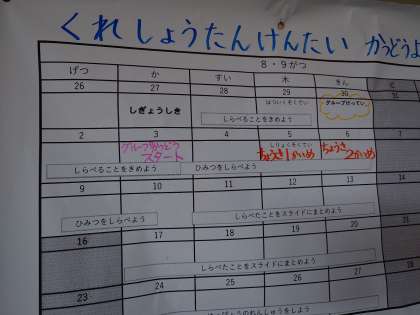 くれしょうたんけんたい かつどうよ
8・9がつ
げつ か すい 木 きん
26 27 28 29 30
しぎょうしき
グループけってい
しらべることをきめよう
2 3 4 5 6
グループかつどう
スタート
しりょくそくてい
ちょうさ1かいめ
ちょうさ
2かいめ
しらべることをきめよう ひみつをしらべよう
9 10 11 12 13
ひみつをしらべよう しらべたことをスライドにまとめよう
16 17 18 19 20
しらべたことをスライドにまとめよう
23 24 25 26 27